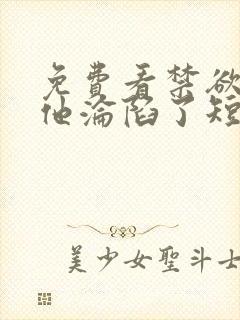 免費看禁欲
他淪陷了短
美少女聖斗士